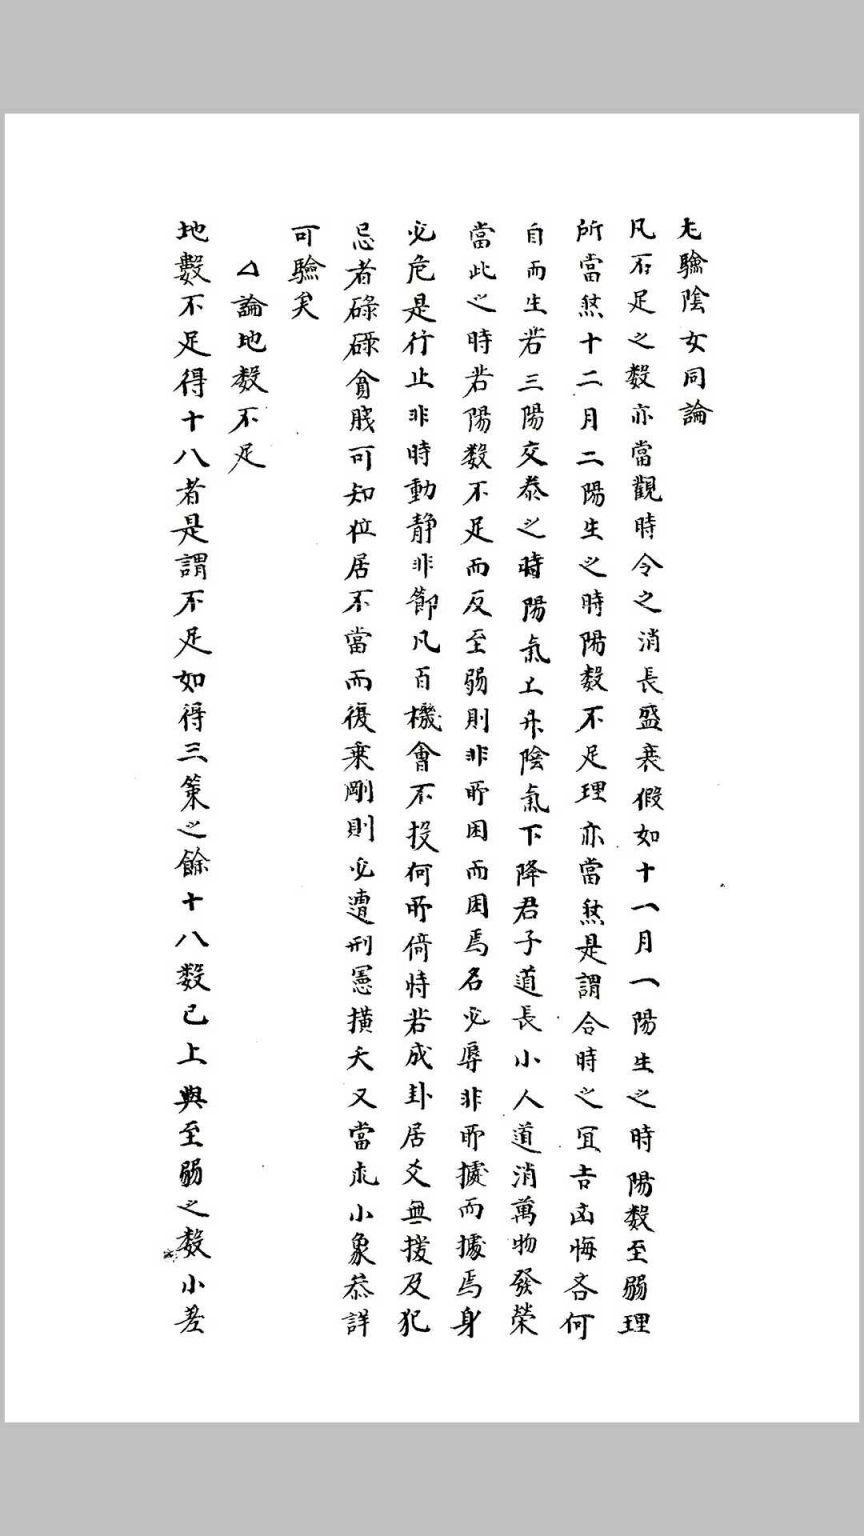 尤驗陰女同論
凡不足之數亦當觀時令之消長盛衰假如十一月一陽生之時陽數至弱理
所當然十二月二陽生之時陽數不足理亦當然是謂合時之宜吉凶悔吝何
自而生若三陽交泰之時陽氣上升陰氣下降君子道長小人道消萬物發榮
當此之時若陽數不足而反至弱則非所困而困焉名必辱非所據而據焉身
必危是行止非時動靜非節凡百機會不投何所倚恃若成卦居爻無援及犯
忌者碌碌貧賤可知位居不當而復乘剛則必遭刑憲橫夭又當求小象恭詳
可驗矣
△論地數不足
地數不足得十八者是謂不足如得三策之餘十八數已上與至弱之數小差